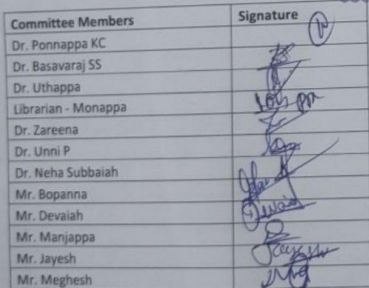 Committee Members Signature
Dr. Ponnappa KC
Dr. Basavaraj SS
Dr. Uthappa
Librarian - Monappa
Dr. Zareena
Dr. Unni P
Dr. Neha Subbaiah
Mr. Bopanna
Mr. Devaiah Devaia
Mr. Manjappa
Mr. Jayesh Jayesh
Mr. Meghesh